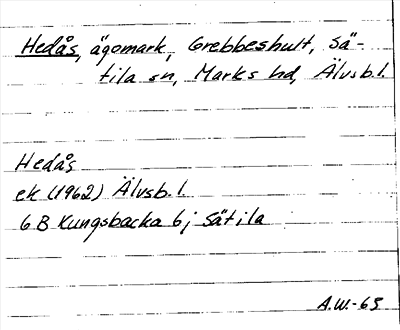 Hedås, ägomark, Grebbeshult, Sä-
tila sn, Marks hd, Älvsb. l.
Hedås
ek (1962) Älvsb. l.
6 B Kungsbacka 6 j Sätila
A.W.-69